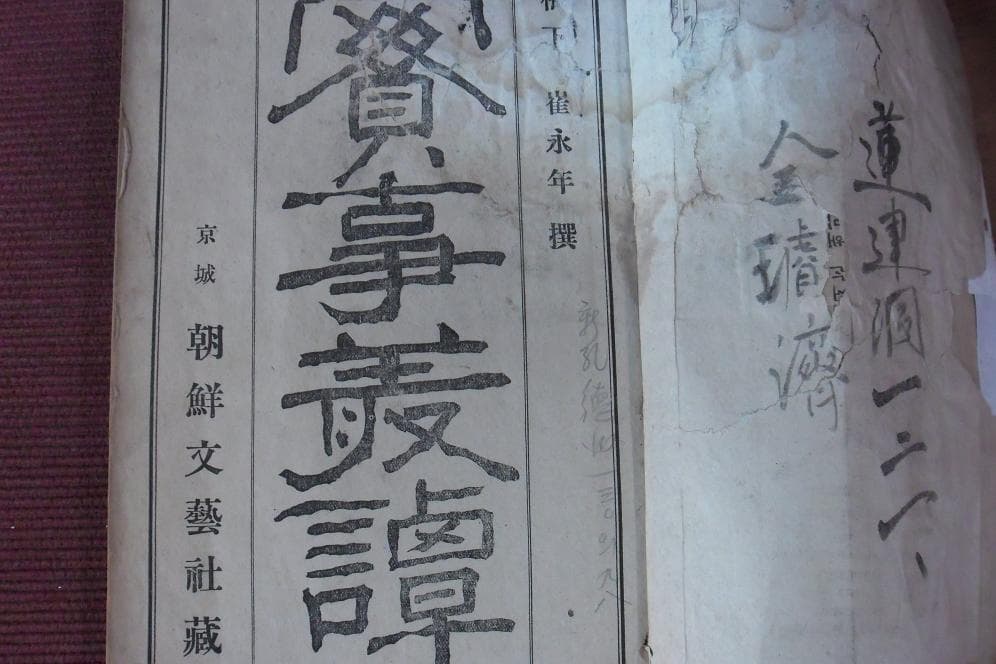 蓮建洞一二一、
金璿濟
下 崔永年 撰
實事叢譚
京城 朝鮮文藝社藏